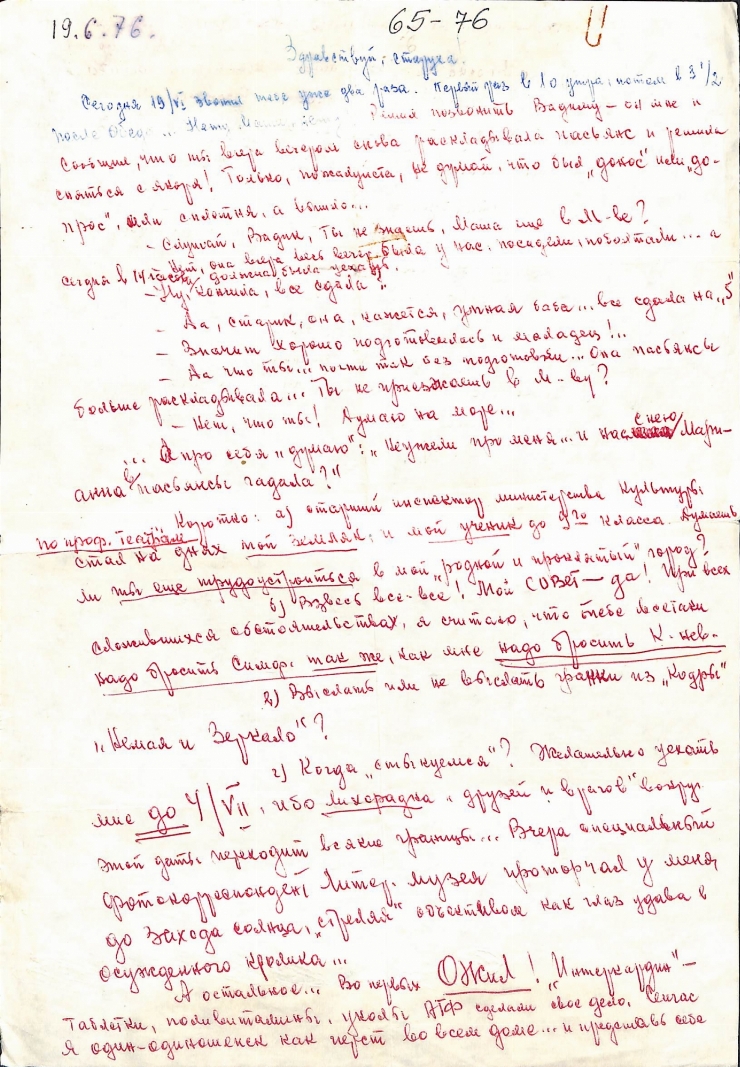 19.6.76.
65-76
Здравствуй, старуха!
Сегодня 19/VI звонил тебе уже два раза. Первый раз в 10 утра, потом в 3 1/2
после обеда... Решил позвонить Вадиму – он мне и
сообщил, что ты вчера вечером снова раскладывала пасьянс и решила
сняться с якоря! Только, пожалуйста, не думай, что был „донос" или „до-
прос", или сплетня, а вышло...
– Слушай, Вадик, ты не знаешь, Маша еще в М-ве?
– Нет, она вчера весь вечер была у нас, посидели, поболтали... а
сегодня в 14 часов должна была уехать.
– Ну, кончила, все сдала?
– Да, старик, она, кажется, умная баба... все сдала на „5"
– Значит хорошо подготовилась и молодец!..
– Да что ты... почти так без подготовки... Она пасьянсы
больше раскладывала... Ты не приезжаешь в М-ву?
– Нет, что ты! Думаю на море...
... А про себя „думаю": „Неужели про меня... и на снею Мари-
анна пасьянсы гадала?"
Коротко: а) старший инспектор министерства культуры
по проф. театрам
стал на днях мой земляк, и мой ученик до 9го класса. Думаешь
ли ты еще трудоустроиться в мой „родной и проклятый" город?
б) Взвесь все-все! Мой СОВЕТ – да! При всех
сложившихся обстоятельствах, я считаю, что тебе всетаки
надо бросить Симф. так же, как мне надо бросить К-нев.
в) Высылать или не высылать гранки из „Кодры"
„Немая и Зеркало"?
г) Когда „стыкуемся"? Желательно уехать
мне до 4/VII, ибо лихорадка „друзей и врагов" вокруг
этой даты переходит всякие границы... Вчера специальный
фотокорреспондент Литер. музея проторчал у меня
до захода солнца, „стреляя" объективом как глаз удава в
осужденного кролика...
А остальное... Во первых ОЖИЛ! „Интеркордин" –
таблетки, поливитамины, уколы АТФ сделали свое дело. Сейчас
я один-одиношенек как перст во всем доме... и представь себе